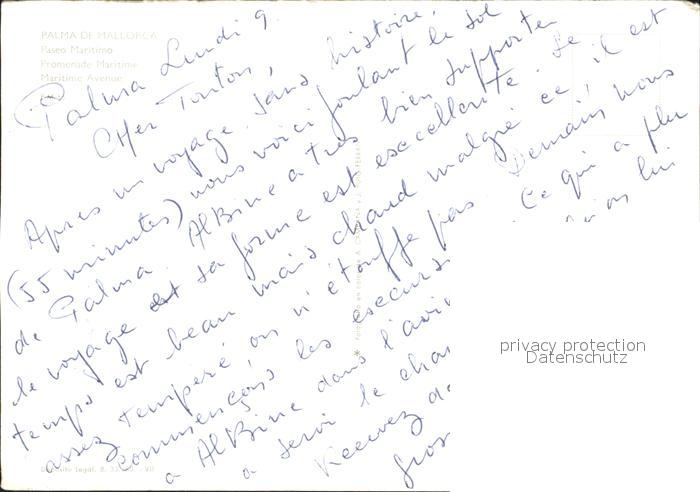 PALMA DE MALLORCA
Paseo Marítimo
Promenade Maritime
Maritime Avenue
Palma Lundi 9.
CHer Tonton,
Après un voyage sans histoire,
(55 minutes) nous voici foulant le sol
de Palma. AlBine a très bien supporter
le voyage et sa forme est excellente. Le
temps est beau mais chaud malgré ce il est
assez tempéré, on n'étouffe pas. Demain nous
commençons les
a AlBine dans l'avi
Ce qui a plu
on lui
a servi le cha
Recevez de
gros
Depósito Legal. B.
privacy protection
Datenschutz